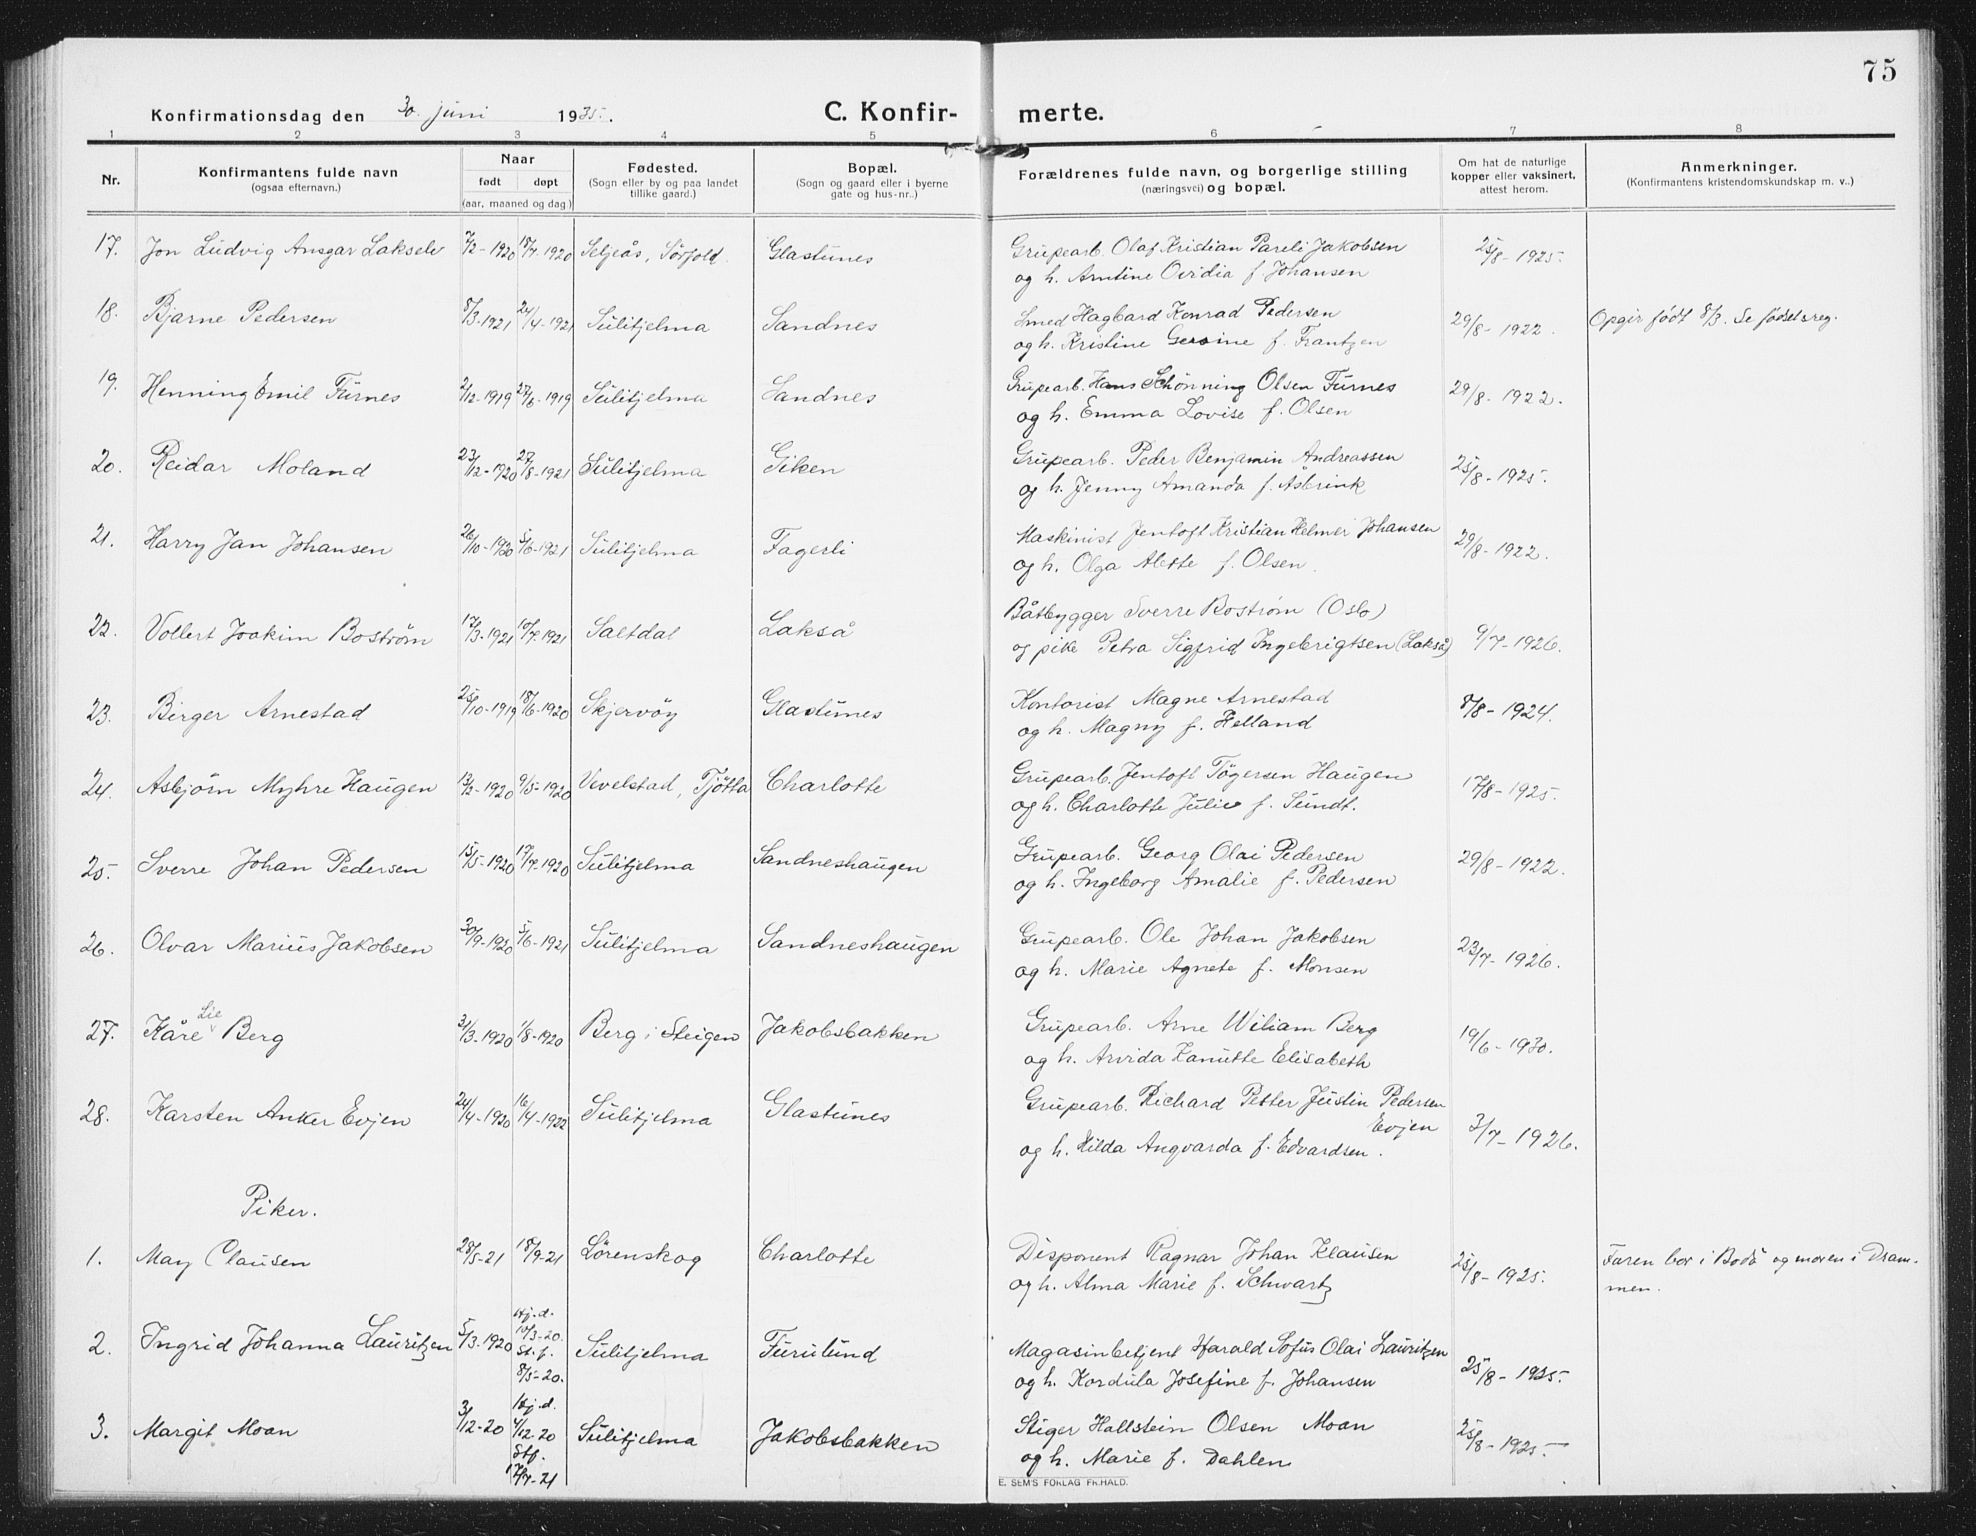 75
Konfirmationsdag den 30. juni 1935. C. Konfir- merte.
1 2 3 4 5 6 7 8
Nr. Konfirmantens fulde navn (ogsaa efternavn.) Naar født døpt (aar, maaned og dag.) Fødested. (Sogn eller by og paa landet tillike gaard.) Bopæl. (Sogn og gaard eller i byerne gate og hus-nr..) Forældrenes fulde navn, og borgerlige stilling (næringsvei) og bopæl. Om hat de naturlige kopper eller vaksinert, attest herom. Anmerkninger. (Konfirmantens kristendomskundskap m. v..)
17. Jon Ludvig Ansgar Lakselv 7/2-1920 18/7-1920 Seljeås, Sørfold. Glastunes Grupearb. Olaf Kristian Pareli Jakobsen 25/8-1925.
og h. Arntine Ovidia f. Johansen
18. Bjarne Pedersen 8/3-1921 24/4-1921 Sulitjelma Sandnes Smed Hagbard Konrad Pedersen 29/8-1922. Opgir født 8/3. Se fødselsreg.
og h. Kristine Gersine f. Frantzen
19. Henning Emil Furnes 2/12-1919 27/6-1919 Sulitjelma Sandnes Grupearb. Hans Schønning Olsen Furnes 29/8-1922.
og h. Emma Lovise f. Olsen
20. Reidar Moland 23/12-1920 27/8-1921 Sulitjelma Giken Grupearb. Peder Benjamin Andreassen 25/8-1925.
og h. Jenny Amanda f. Åsbrink
21. Harry Jan Johansen 26/10-1920 5/6-1921 Sulitjelma Fagerli Maskinist Jentoft Kristian Helmer Johansen 29/8-1922.
og h. Olga Alette f. Olsen.
22. Vollert Joakim Bostrøm 17/3-1921 10/7-1921 Saltdal Lakså Båtbygger Sverre Bostrøm (Oslo)
og pike Petra Sigfrid Ingebrigtsen (Lakså) 9/7-1926.
23. Birger Arnestad 25/10-1919 18/6-1920 Skjervöy Glastunes Kontorist Magne Arnestad 8/8-1924.
og h. Magny f. Helland
24. Asbjørn Myhre Haugen 13/2-1920 9/5-1920 Vevelstad, Tjötta Charlotte Grupearb. Jentoft Tögersen Haugen 17/8-1925.
og h. Charlotte Julie f. Sundt.
25. Sverre Johan Pedersen 15/5-1920 17/7-1920 Sulitjelma Sandneshaugen Grupearb. Georg Olai Pedersen 29/8-1922.
og h. Ingeborg Amalie f. Pedersen
26. Olvar Marius Jakobsen 30/9-1920 5/6-1921 Sulitjelma Sandneshaugen Grupearb. Ole Johan Jakobsen 23/7-1926.
og h. Marie Agnete f. Monsen
27. Kåre Lie Berg 31/3-1920 1/8-1920 Berg i Steigen Jakobsbakken Grupearb. Arne Wiliam Berg 19/6-1930.
og h. Arvida Zanutte Elisabeth
28. Karsten Anker Evjen 24/4-1920 16/4-1922 Sulitjelma Glastunes Grupearb. Richard Petter Justin Pedersen
Evjen 3/7-1926.
og h. Hilda Angvarda f. Edvardsen.
Piker.
1. May Clausen 28/5-21 18/9-21 Lørenskog Charlotte Disponent Ragnar Johan Klausen 25/8-1925. Faren bor i Bodø og moren i Dram-
og h. Alma Marie f. Schwartz men.
2. Ingrid Johanna Lauritzen 5/3-1920 Hj.d. 10/3-20. St.f. 8/5-20. Sulitjelma Furulund Magasinbetjent Harald Sofus Olai Lauritzen 25/8-1925.
og h. Kordula Josefine f. Johansen
3. Margit Moan 3/12-20 Hj.d. 4/12.20 Stf. 17/7-21 Sulitjelma Jakobsbakken Stiger Hallstein Olsen Moan 25/8-1925
og h. Marie f. Dahlen
E. SEM'S FORLAG FR.HALD.